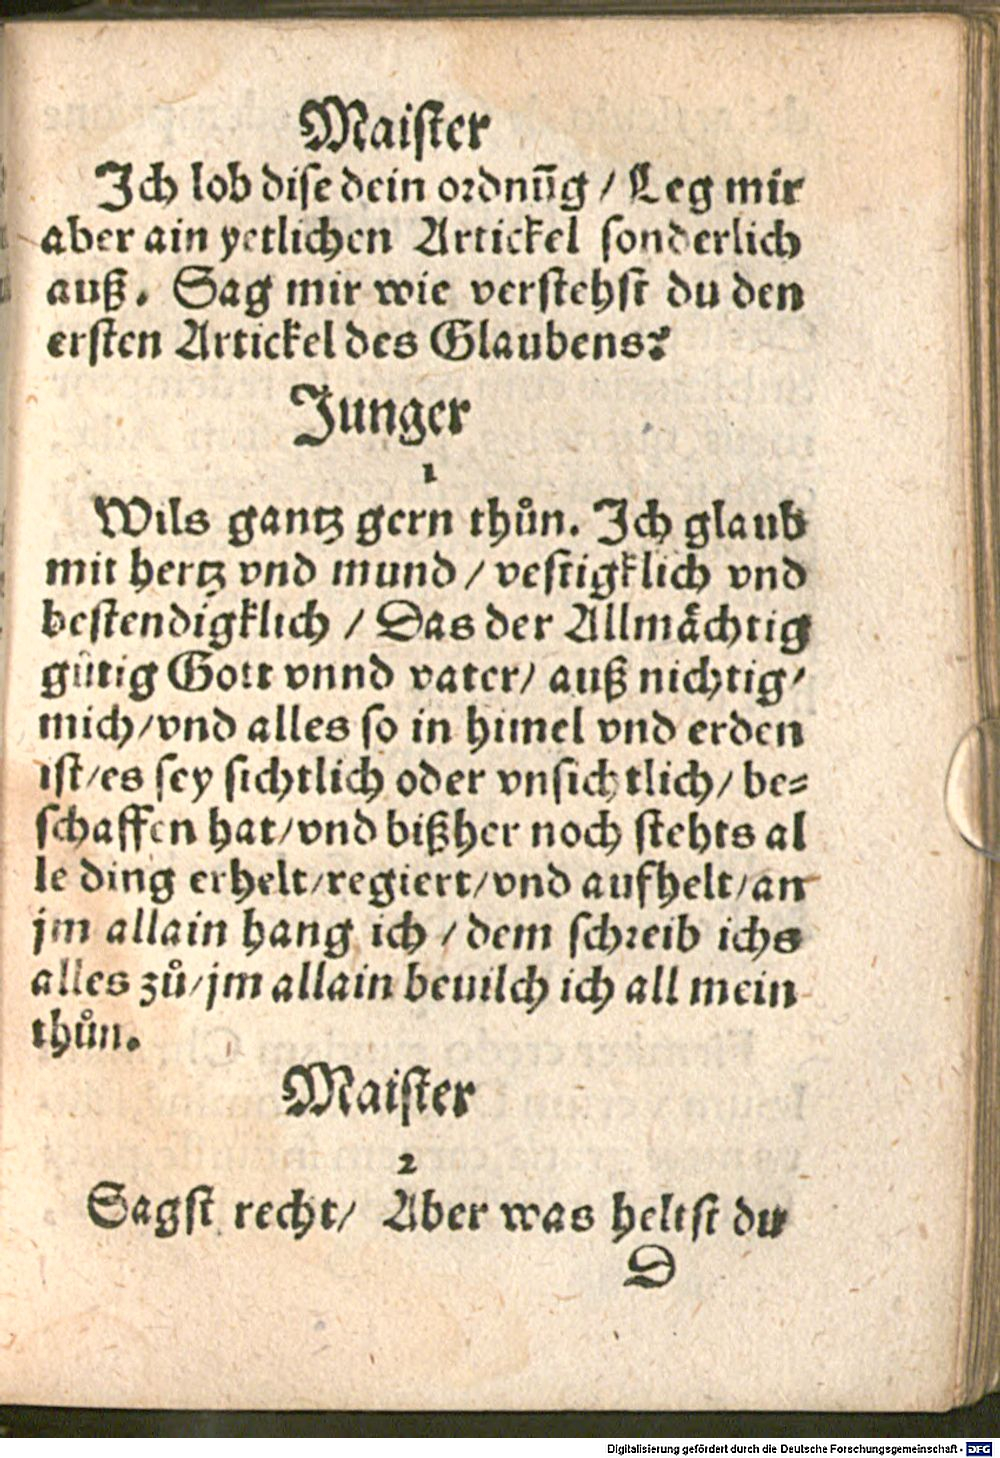 Maister
Ich lob dise dein ordnūg / Leg mir
aber ain yetlichen Artickel sonderlich
auß. Sag mir wie verstehst du den
ersten Artickel des Glaubens?
Junger
1
Wils gantz gern thůn. Ich glaub
mit hertz vnd mund / vestigklich vnd
bestendigklich / Das der Allmåchtig
gütig Gott vnnd vater/ auß nichtig/
mich/vnd alles so in himel vnd erden
ist/es sey sichtlich oder vnsichtlich/ be-
schaffen hat/vnd bißher noch stehts al
le ding erhelt/regiert/vnd aufhelt/an
jm allain hang ich / dem schreib ichs
alles zů/jm allain beuilch ich all mein
thůn.
Maister
2
Sagst recht/ Aber was heltst du
D
Digitalisierung gefördert durch die Deutsche Forschungsgemeinschaft - DFG